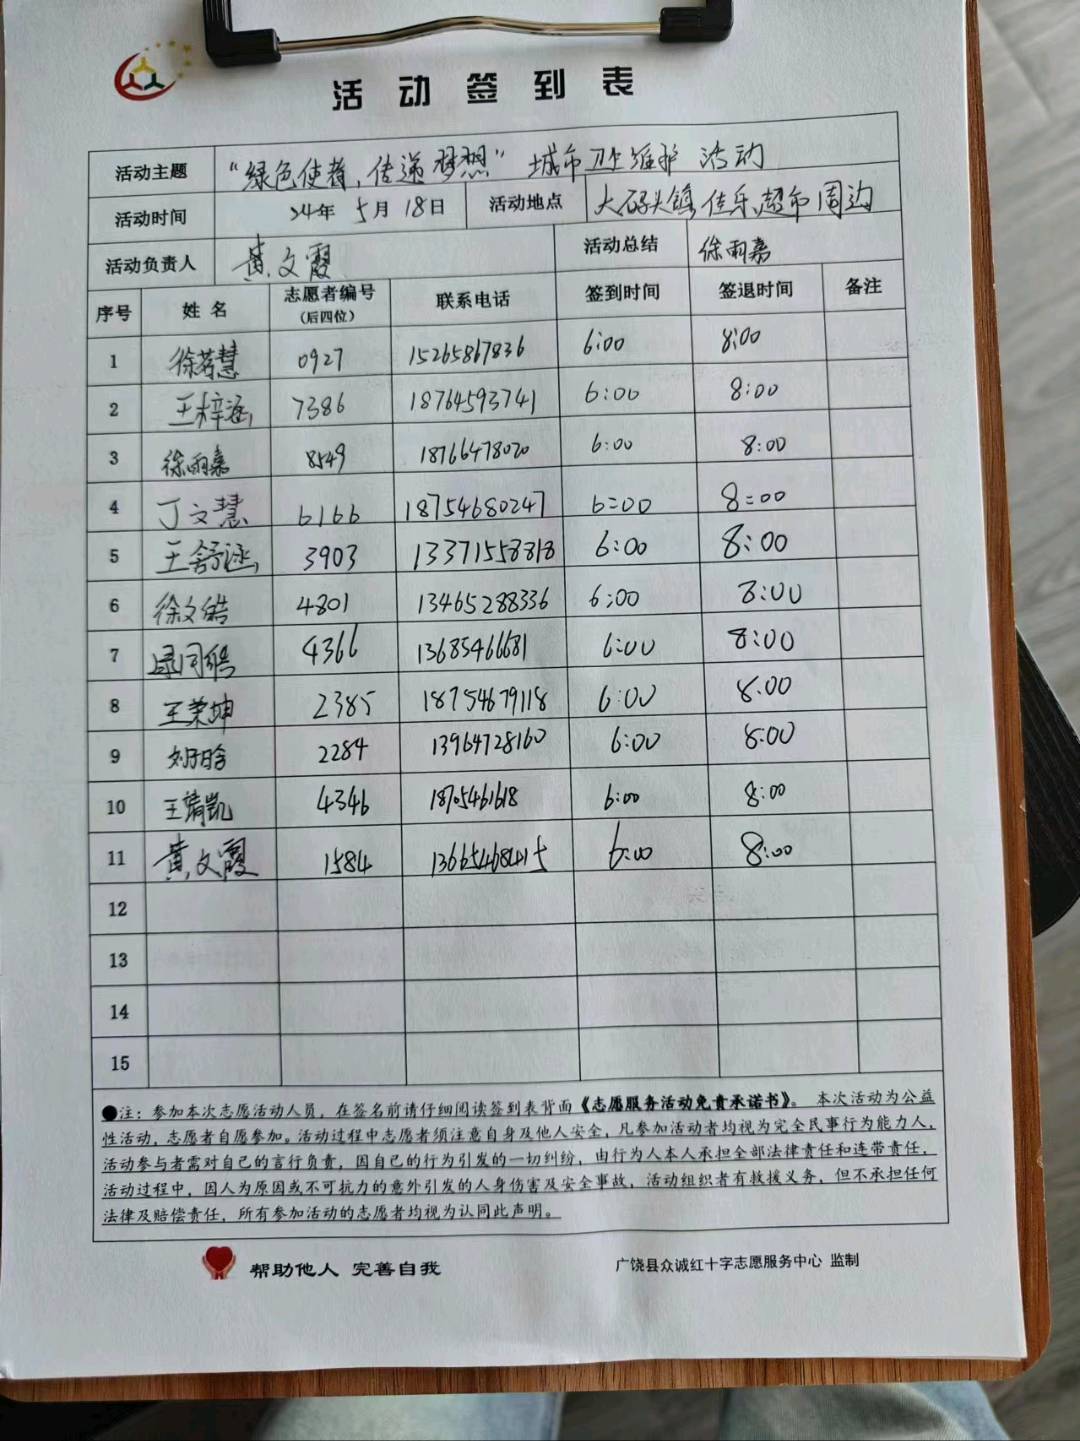 活动签到表
活动主题 "绿色使者,传递梦想" 城市卫生维护 活动
活动时间 24年 5月 18日 活动地点 大码头镇佳乐超市周边
活动负责人 黄文霞 活动总结 徐雨嘉
序号 姓名 志愿者编号 (后四位) 联系电话 签到时间 签退时间 备注
1 徐若慧 0927 15265867836 6:00 8:00
2 王梓涵 7386 18764593741 6:00 8:00
3 徐雨嘉 8549 18766478020 6:00 8:00
4 丁文慧 6166 18754680247 6:00 8:00
5 王舒涵 3903 13371558818 6:00 8:00
6 徐文皓 4801 13465288336 6:00 8:00
7 4366 13685466681 6:00 8:00
8 王荣坤 2385 18754679118 6:00 8:00
9 2284 13964728160 6:00 8:00
10 王靖凯 4346 6:00 8:00
11 黄文霞 1584 13665468415 6:00 8:00
12
13
14
15
●注:参加本次志愿活动人员,在签名前请仔细阅读签到表背面《志愿服务活动免责承诺书》。本次活动为公益
性活动,志愿者自愿参加。活动过程中志愿者须注意自身及他人安全,凡参加活动者均视为完全民事行为能力人,
活动参与者需对自己的言行负责,因自己的行为引发的一切纠纷,由行为人本人承担全部法律责任和连带责任,
活动过程中,因人为原因或不可抗力的意外引发的人身伤害及安全事故,活动组织者有救援义务,但不承担任何
法律及赔偿责任,所有参加活动的志愿者均视为认同此声明。
帮助他人 完善自我 广饶县众诚红十字志愿服务中心 监制